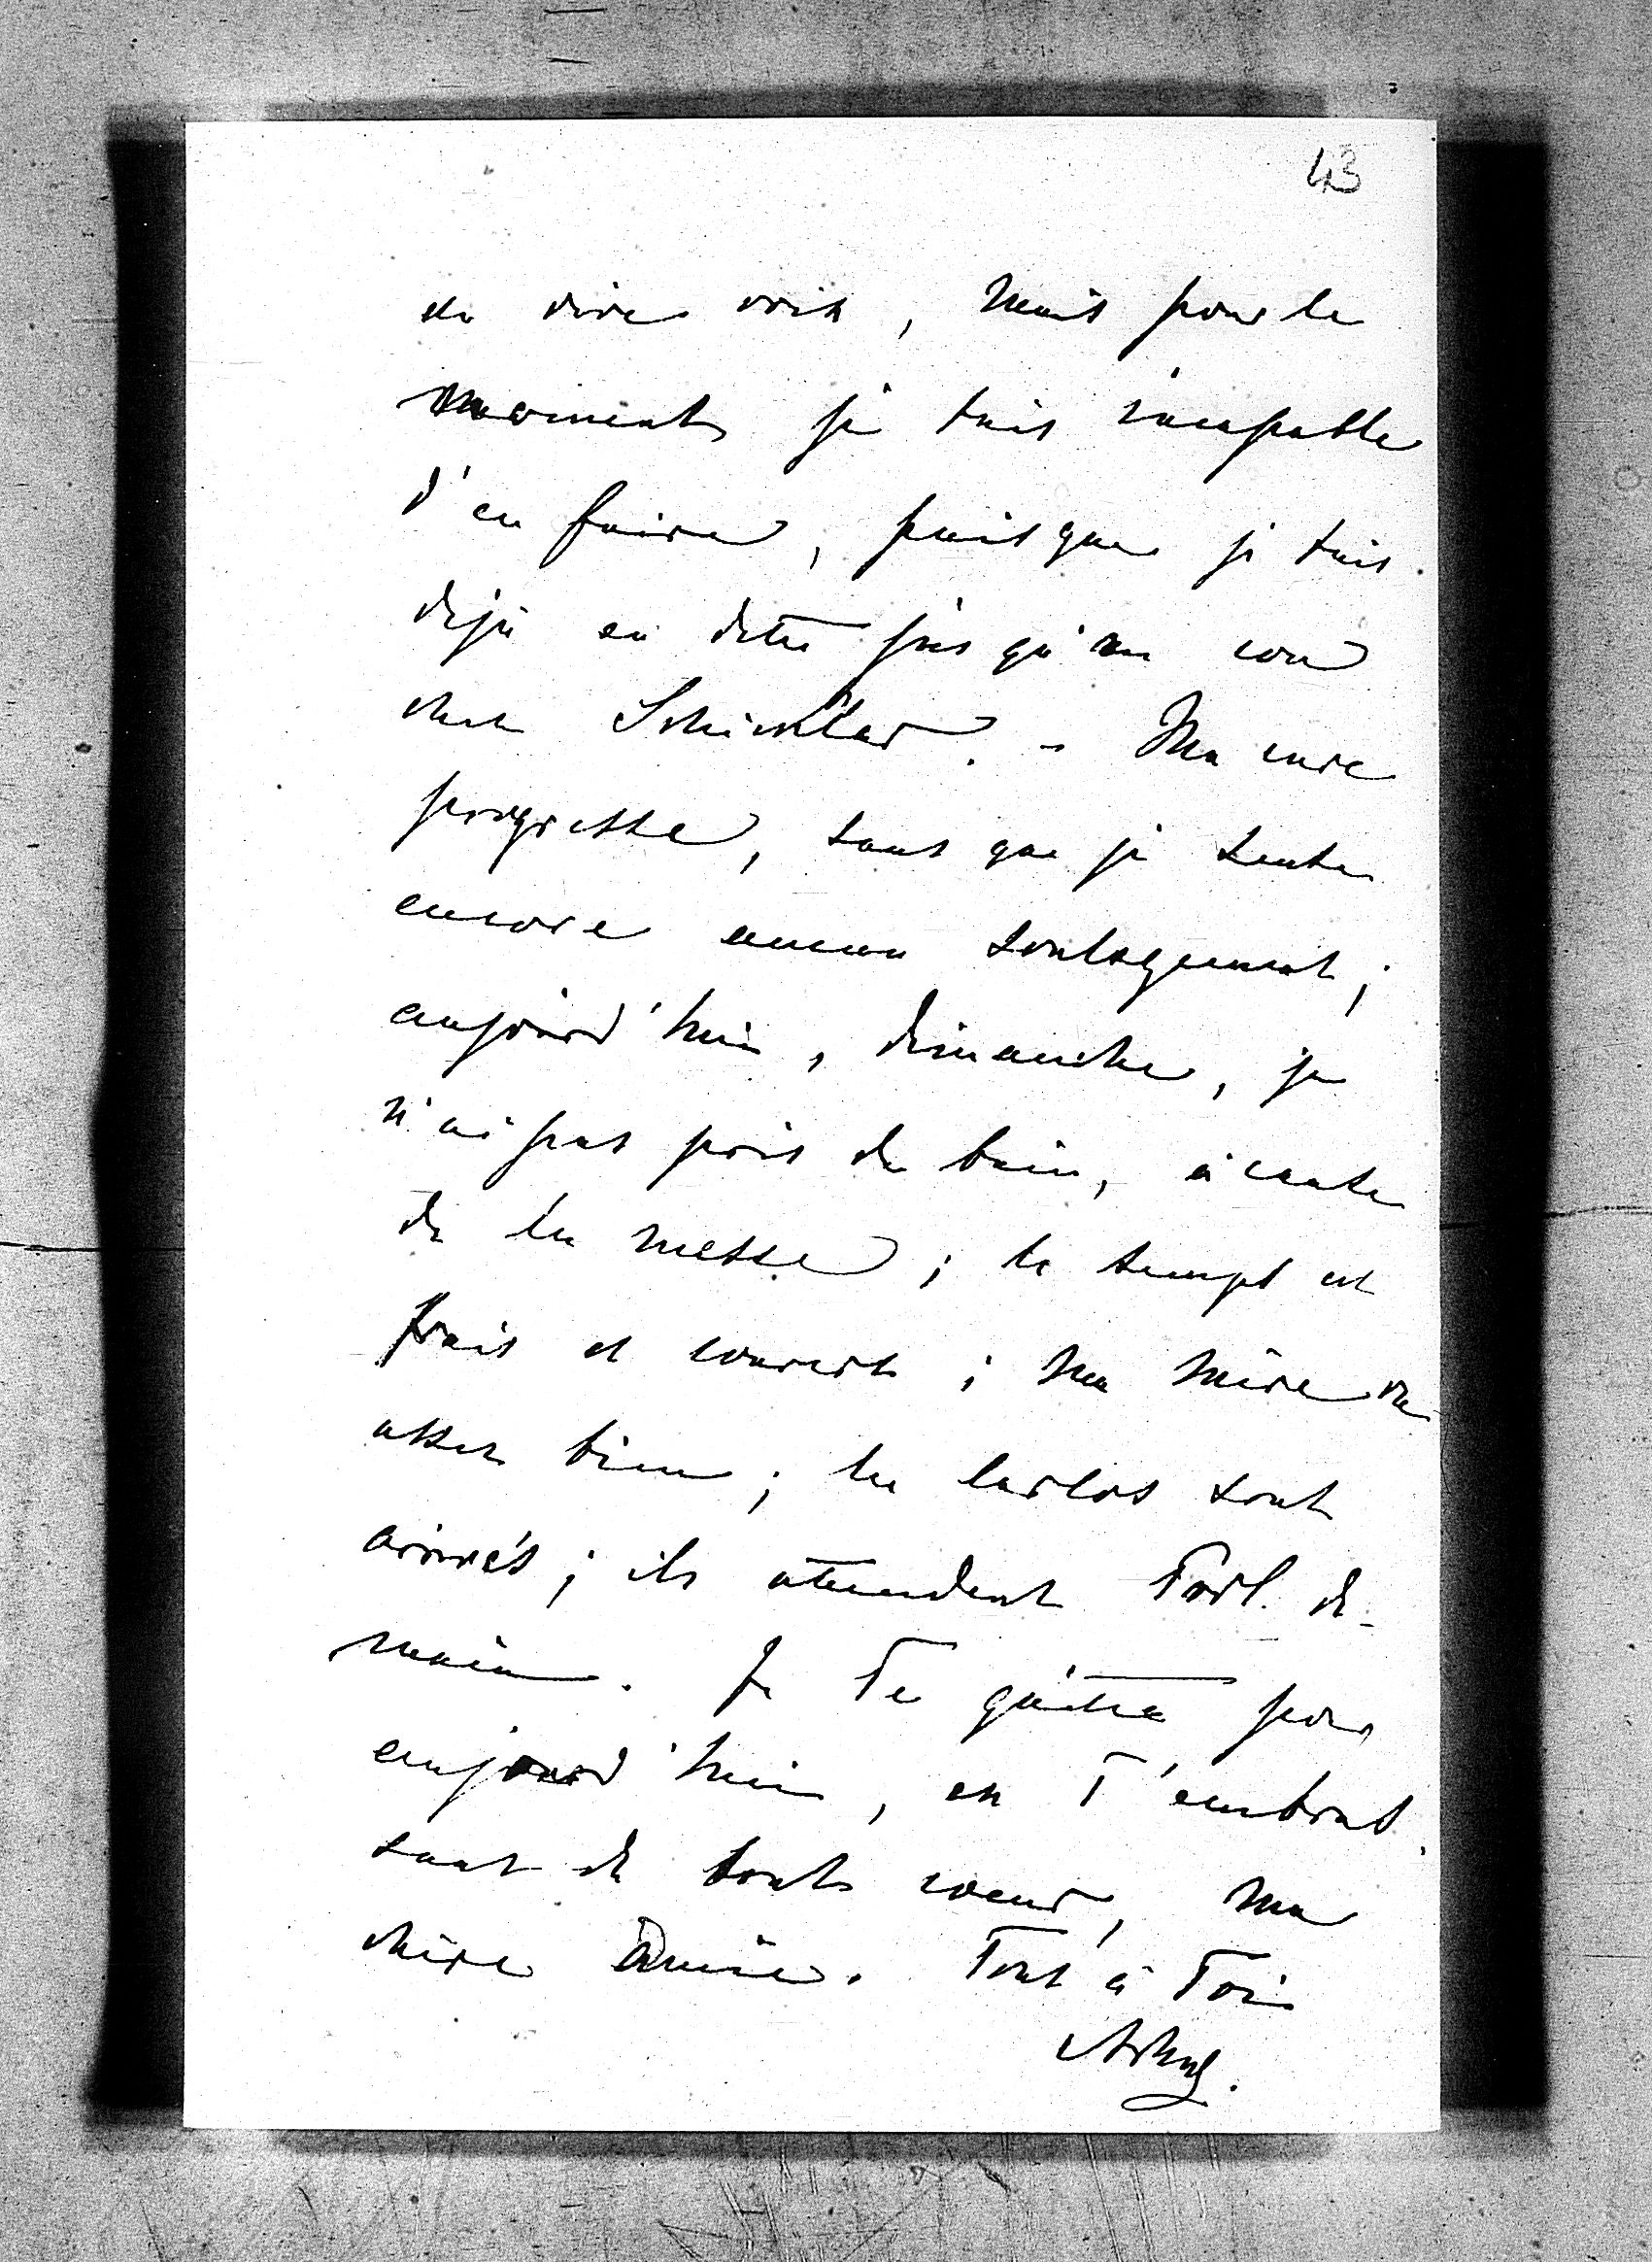 43
mais pour le
moment je suis incapable
d'en faire, puisque je suis
déjà en dette jusqu'au cou
chez Schickler. – Ma cure
progresse, sans que je sente
encore aucun soulagement;
aujourd'hui, dimanche, je
n'ai pas pris de bain, à cause
de la messe; le temps est
frais et couvert; ma mère va
assez bien; les Carlos sont
arrivés; ils attendent de-
main. Je Te quitte pour
aujourd'hui, en T'embras-
sant de tout coeur, ma
chère Amie. Tout à Toi